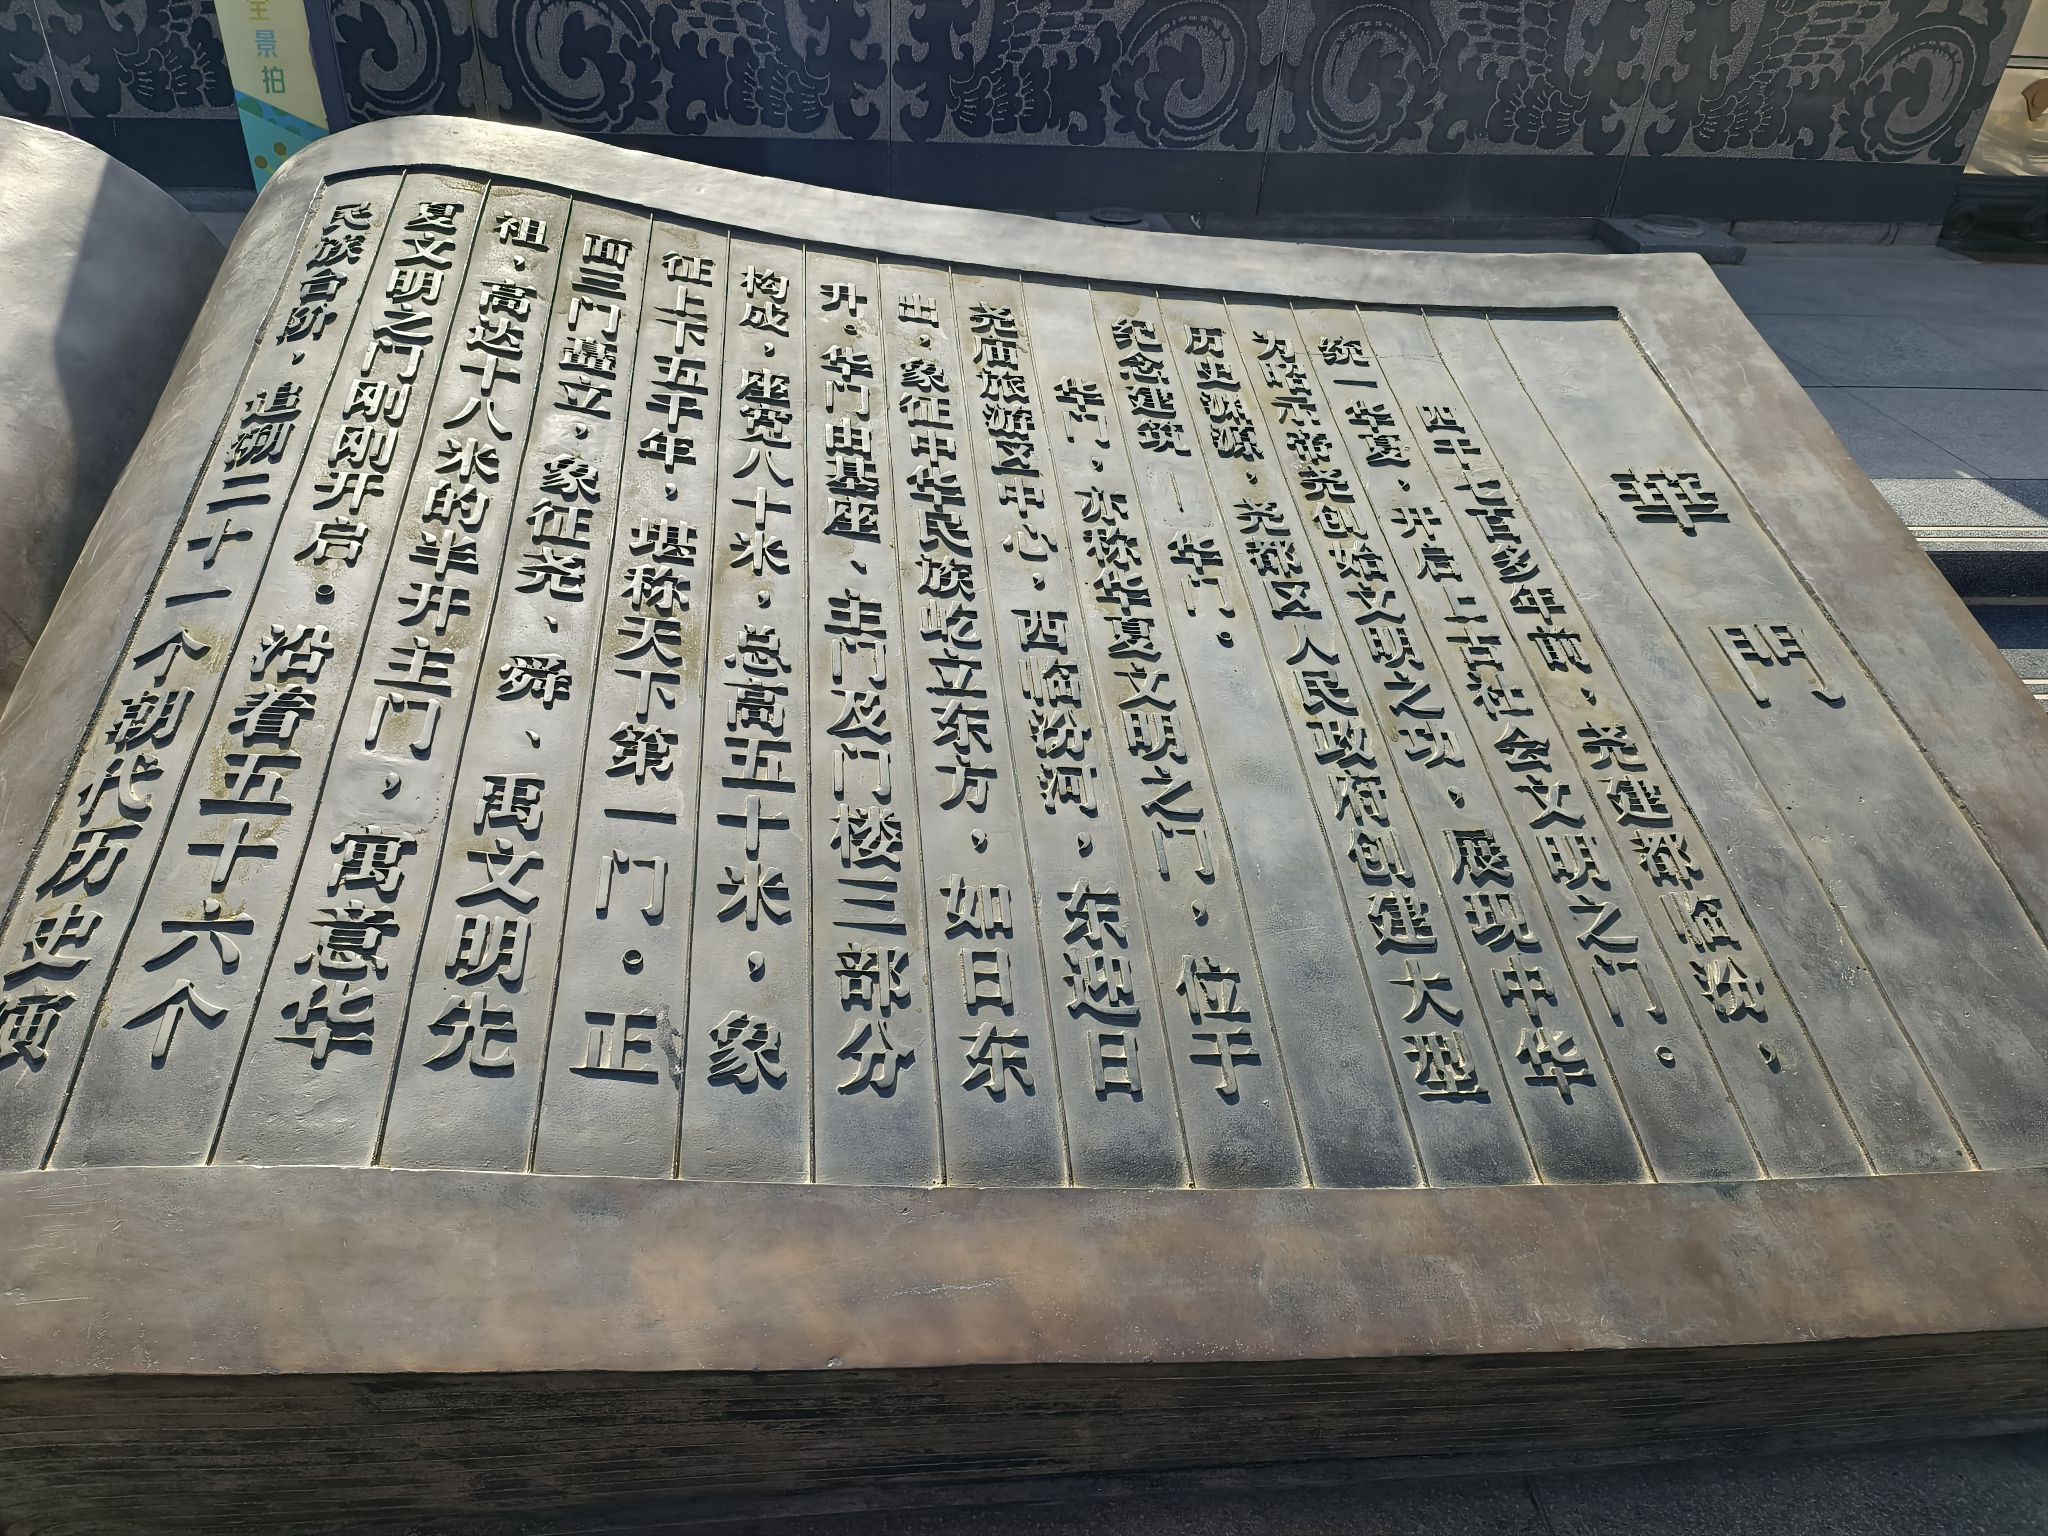 華門
四千七百多年前，尧建都临汾，
统一华夏，开启上古社会文明之门。
为昭示帝尧创始文明之功、展现中华
历史渊源，尧都区人民政府创建大型
纪念建筑—华门。
华门，亦称华夏文明之门，位于
尧庙旅游区中心，西临汾河，东迎日
出，象征中华民族屹立东方，如日东
升。华门由基座、主门及门楼三部分
构成，座宽八十米，总高五十米，象
征上下五千年，堪称天下第一门。正
面三门矗立，象征尧、舜、禹文明先
祖，高达十八米的半开主门，寓意华
夏文明之门刚刚开启。沿着五十六个
民族台阶，追溯二十一个朝代历史演
全景拍